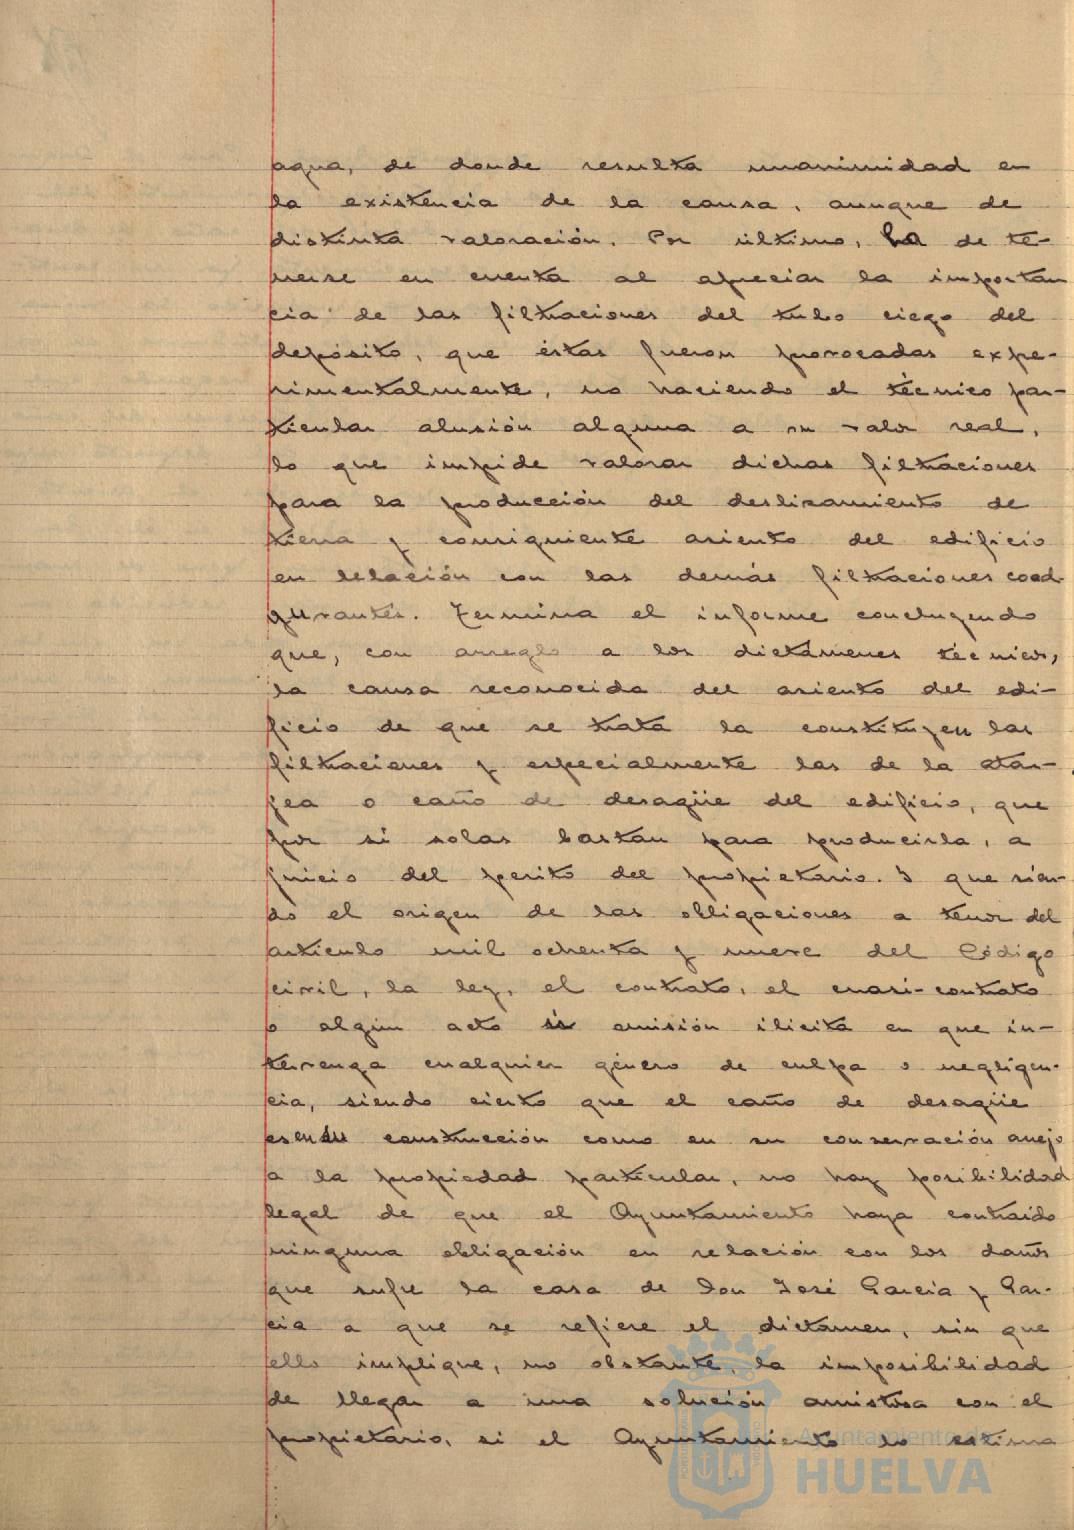 agua, de donde resulta unanimidad en
la existencia de la causa, aunque de
distinta valoración. Por último, ha de te-
nerse en cuenta al apreciar la importan
cia de las filtraciones del tubo ciego del
depósito, que éstas fueron provocadas expe-
rimentalmente, no haciendo el técnico par-
ticular alusión alguna a su valor real,
lo que impide valorar dichas filtraciones
para la producción del deslizamiento de
tierra y consiguiente asiento del edificio
en relación con las demás filtraciones coad-
yuvantes. Termina el informe concluyendo
que, con arreglo a los dictámenes técnicos,
la causa reconocida del asiento del edi-
ficio de que se trata la constituyen las
filtraciones y especialmente las de la atar-
jea o caño de desagüe del edificio, que
por si solas bastan para producirla, a
juicio del perito del propietario. Y que sien-
do el origen de las obligaciones a tenor del
artículo mil ochenta y nueve del Código
civil, la ley, el contrato, el cuasi-contrato
o algún acto ú omisión ilícita en que in-
tervenga cualquier género de culpa o negligen-
cia, siendo cierto que el caño de desagüe
es en su construcción como en su conservación anejo
a la propiedad particular, no hay posibilidad
legal de que el Ayuntamiento haya contraido
ninguna obligación en relación con los daños
que sufre la casa de Don José García y Gar-
cía a que se refiere el dictamen, sin que
ello implique, no obstante, la imposibilidad
de llegar a una solución amistosa con el
propietario, si el Ayuntamiento lo estima
Ayuntamiento de
HUELVA